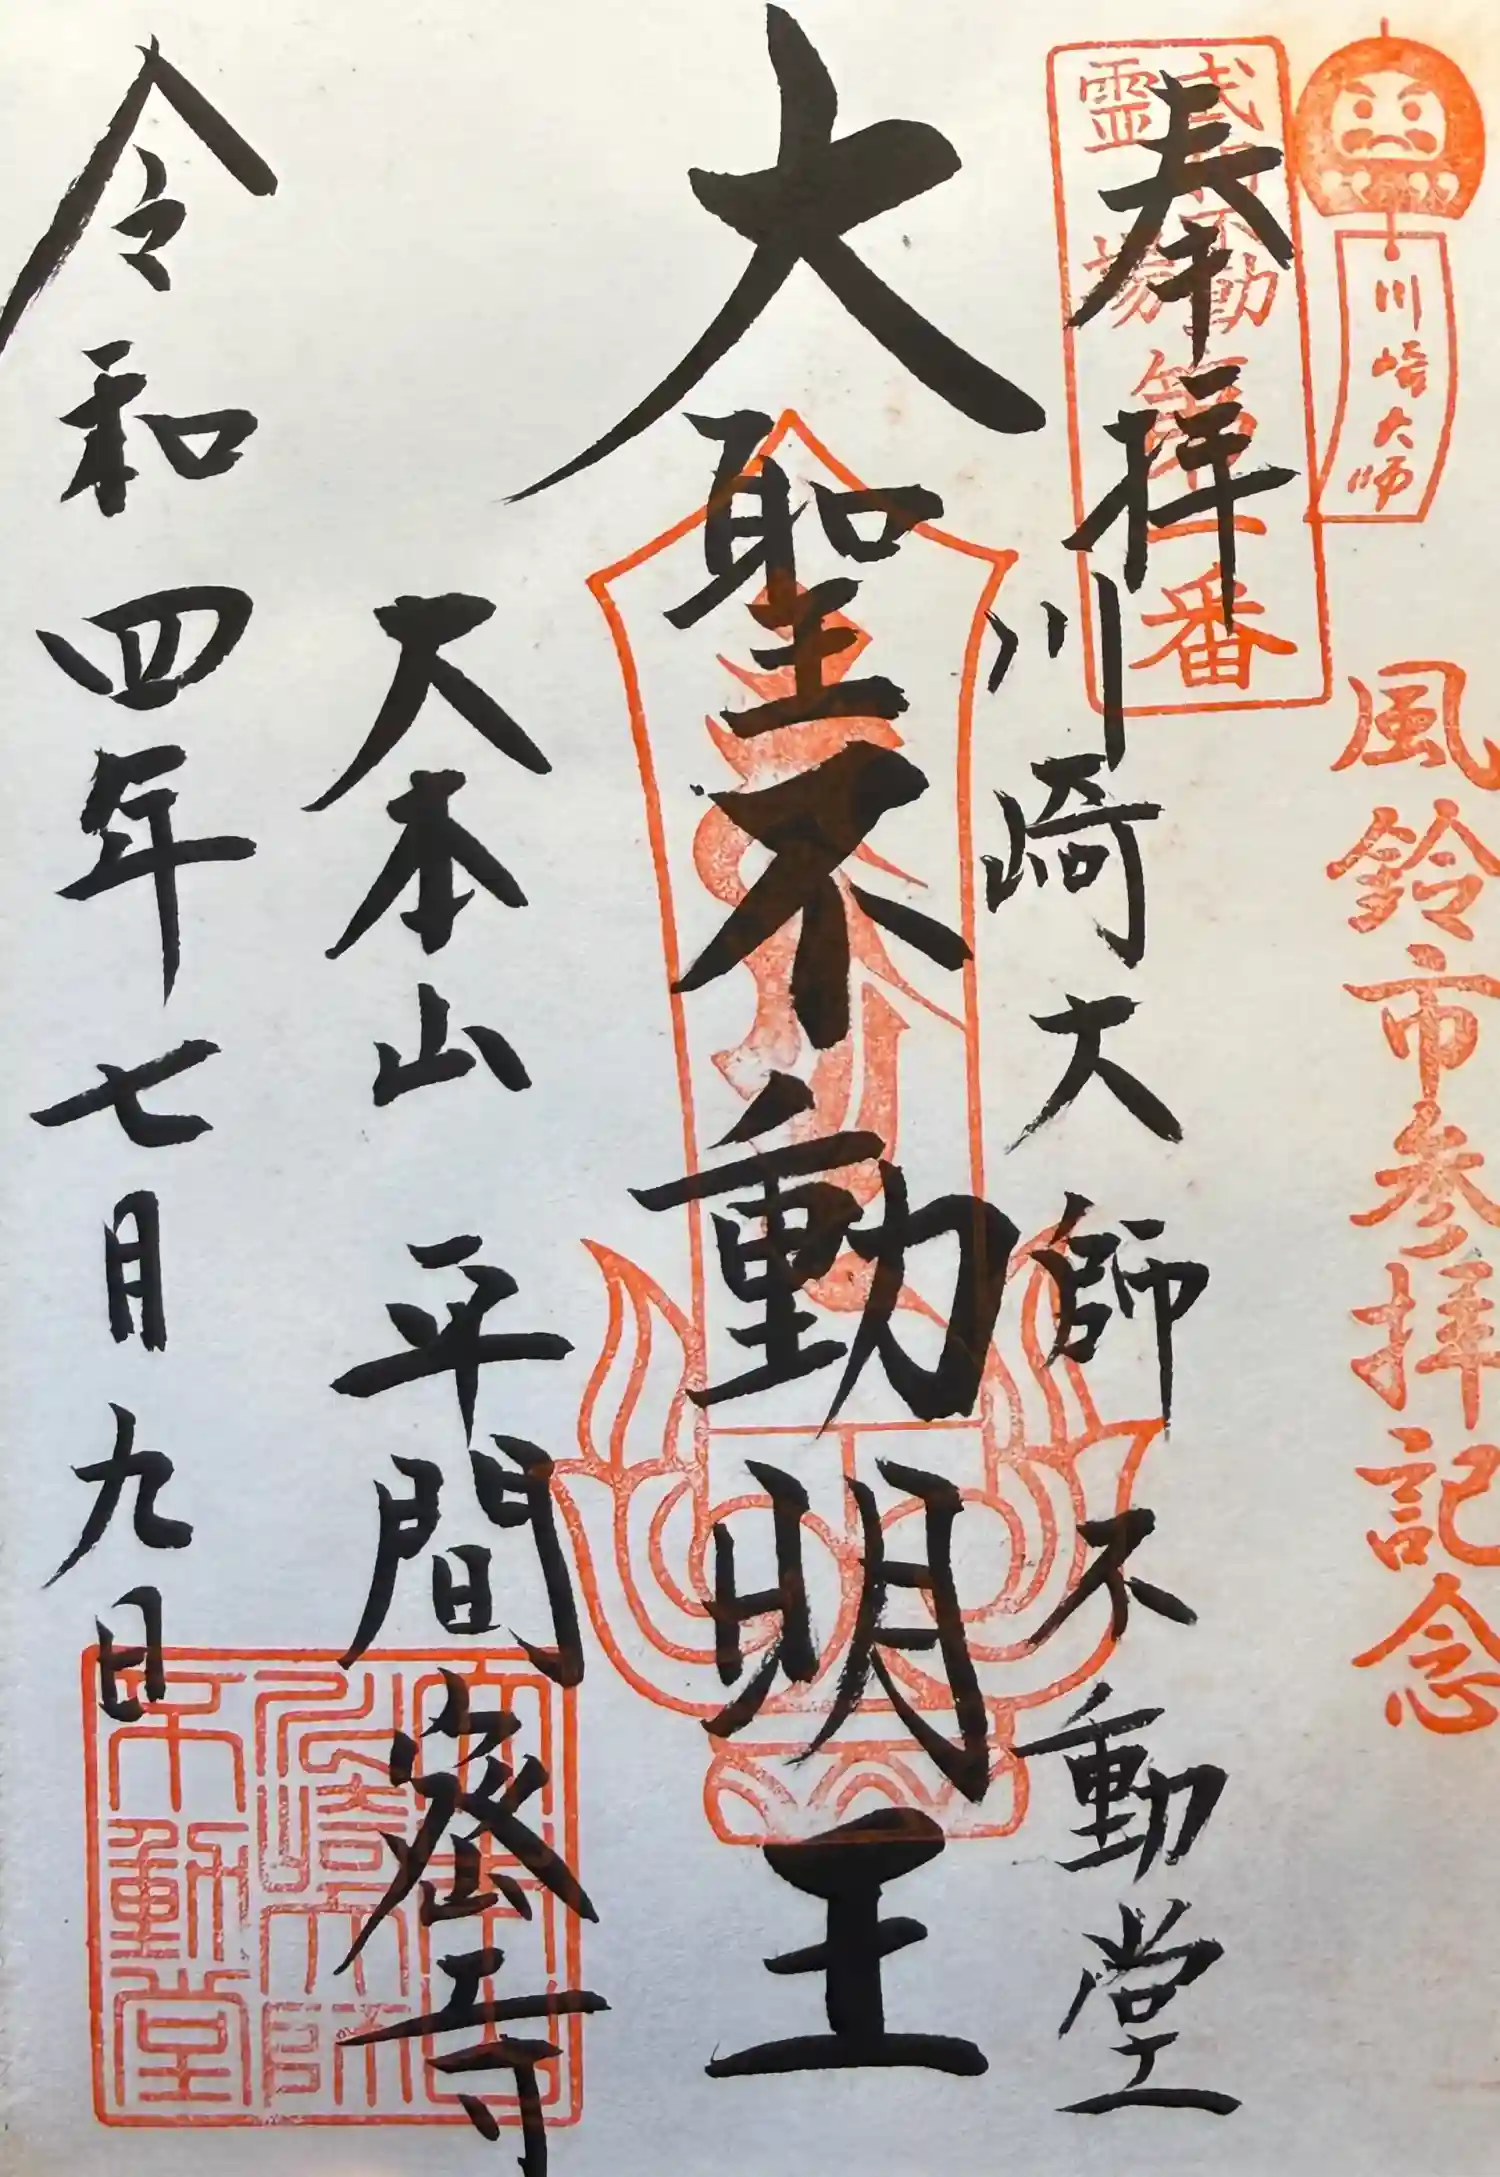 川崎大師
風鈴市参拝記念
奉拝
武相不動
霊場
第一番
川崎大師不動堂
大聖不動明王
大本山 平間寺
令和四年七月九日
大本山
川崎大師
不動堂